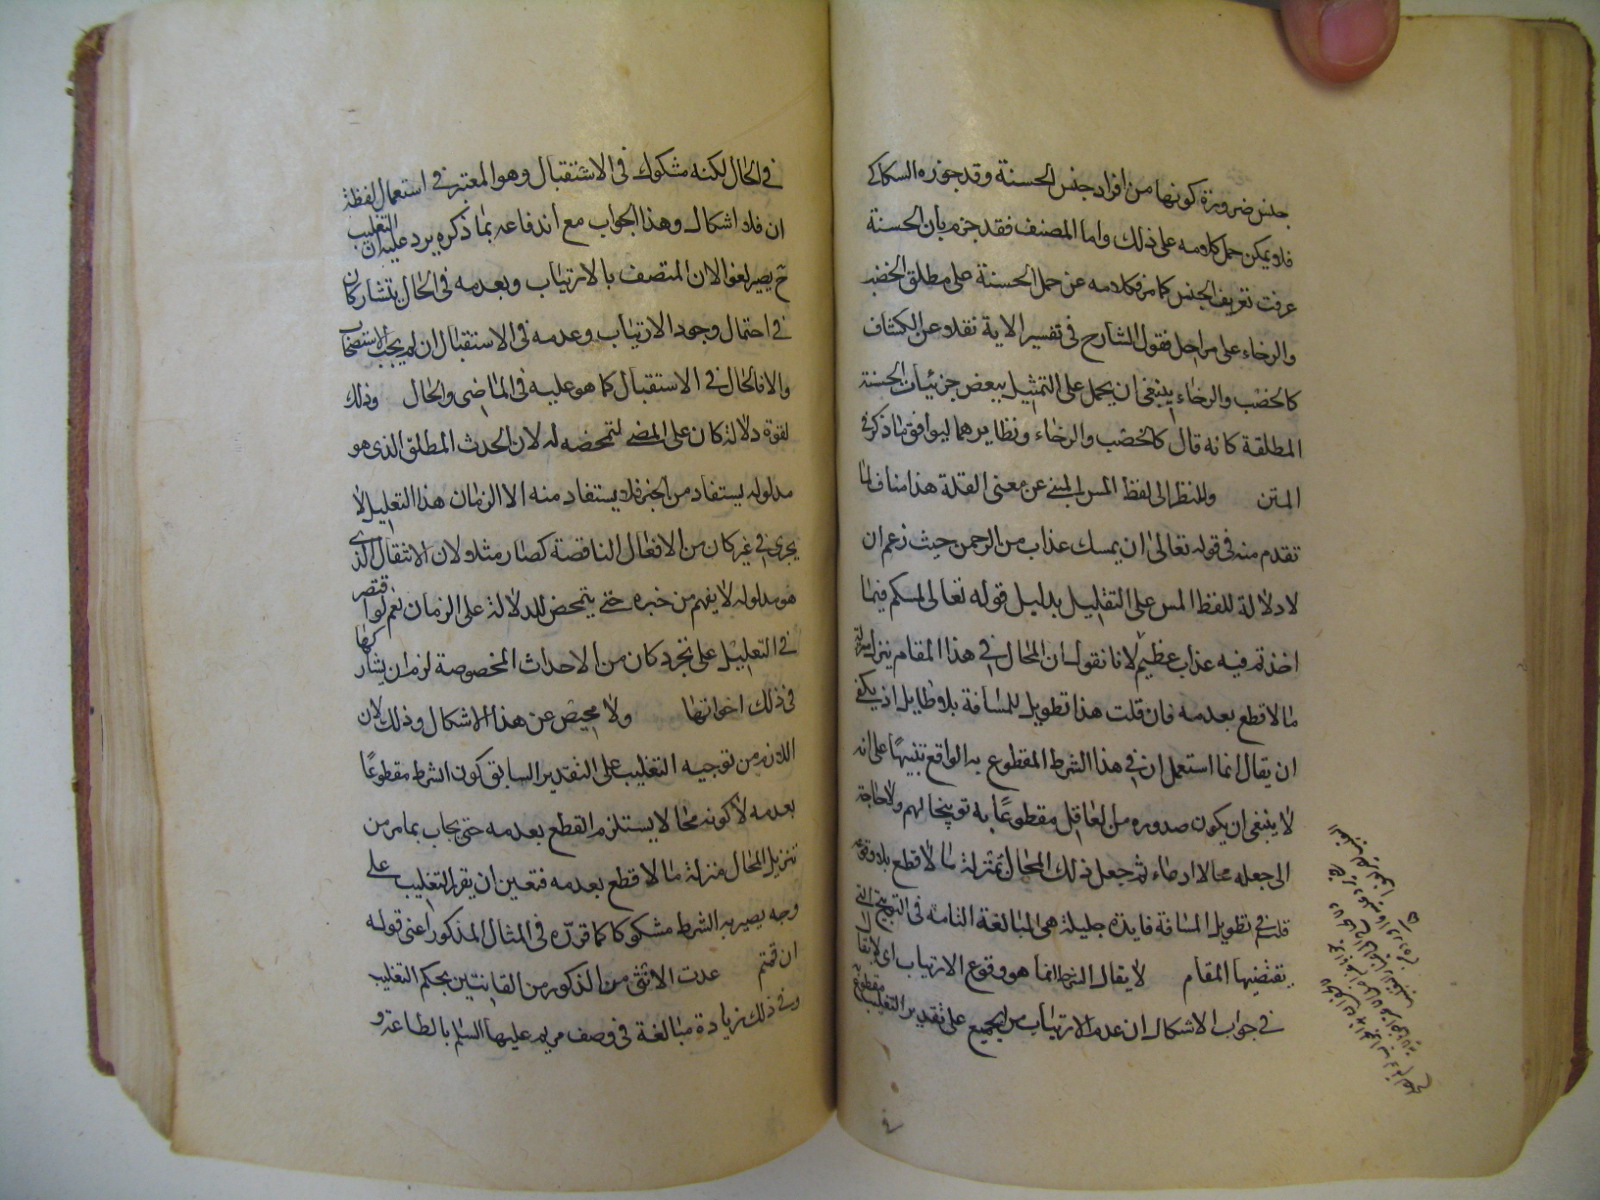 جنس ضرورة كونها من افراد جنس الحسنة وقد جوزه السكاكے
فلا يمكن حمل كلامه على ذلك واما المصنف فقد جزم بأن الحسنة
عرفت تعريف الجنس كما مر فكلامه عن حمل الحسنة على مطلق الخصب
والرخاء على مراحل فقول الشارح فى تفسير الاية نقلا عن الكشاف
كالخصب والرخاء ينبغى ان يحمل على التمثيل ببعض جزئيات الحسنة
المطلقة كانه قال كالخصب والرخاء ونظايرهما ليوافق ما ذكر فى
المتن وللنظر الى لفظ المس المنبئ عن معنى القلة هذا مناف لما
تقدم منه فى قوله تعالى ان يمسك عذاب من الرحمن حيث زعم ان
لا دلالة للفظ المس على التقليل بدليل قوله تعالى لمسكم فيما
اخذتم فيه عذاب عظيم لانا نقول ان المحال فى هذا المقام ينزل منزلة
ما لا قطع بعدمه فان قلت هذا تطويل للمسافة بلا طايل اذ يكفى
ان يقال انما استعمل ان فى هذا الشرط المقطوع به الواقع تنبيهًا على انه
لا ينبغى ان يكون صدوره من العاقل مقطوعًا به توبيخا لهم ولا حاجة
الى جعله محالا ادعاء ثم جعل ذلك المحال بمنزلة ما لا قطع بلا وقوعه
قلت فى تطويل المسافة فايدة جليلة هى المبالغة التامة فى التوبيخ التى
يقتضيها المقام لا يقال الشرط انما هو وقوع الارتياب اى لا يقال
فى جواب الاشكال ان عدم الارتياب من الجميع على تقدير التغليب مقطوع
فى الحال لكنه مشكوك فى الاستقبال وهو المعتبر فى استعمال لفظة
ان فلا اشكال وهذا الجواب مع اندفاعه بما ذكره يرد عليه ان التغليب
ح يصير لغوا لان المتصف بالارتياب وبعدمه فى الحال يتشاركان
فى احتمال وجود الارتياب وعدمه فى الاستقبال ان لم يجب الاستصحاب
والا فالحال فى الاستقبال كما هو عليه فى الماضى والحال وذلك
لقوة دلالة كان على المضى لتمحضه له لان الحدث المطلق الذى هو
مدلوله يستفاد من الخبر فلا يستفاد منه الا الزمان هذا التعليل لا
يجرى فى غير كان من الافعال الناقصة كصار مثلا لان الانتقال الذى
هو مدلوله لا يفهم من خبره حتى يتمحض للدلالة على الزمان نعم لو اقتصر
فى التعليل على تجرد كان من الاحداث المخصوصة لزم ان يشاركها
فى ذلك اخواتها ولا محيص عن هذا الاشكال وذلك لان
اللازم من توجيه التغليب على التقدير السابق كون الشرط مقطوعًا
بعدمه لا كونه محالا يستلزم القطع بعدمه حتى يجاب بما مر من
تنزيل المحال منزلة ما لا قطع بعدمه فتعين ان يقرر التغليب على
وجه يصير به الشرط مشكوكا كما قرّره فى المثال المذكور اعنى قوله
ان قمتم عدت الانثى من الذكور من القانتين بحكم التغليب
وفى ذلك زيادة مبالغة فى وصف مريم عليها السلم بالطاعة و